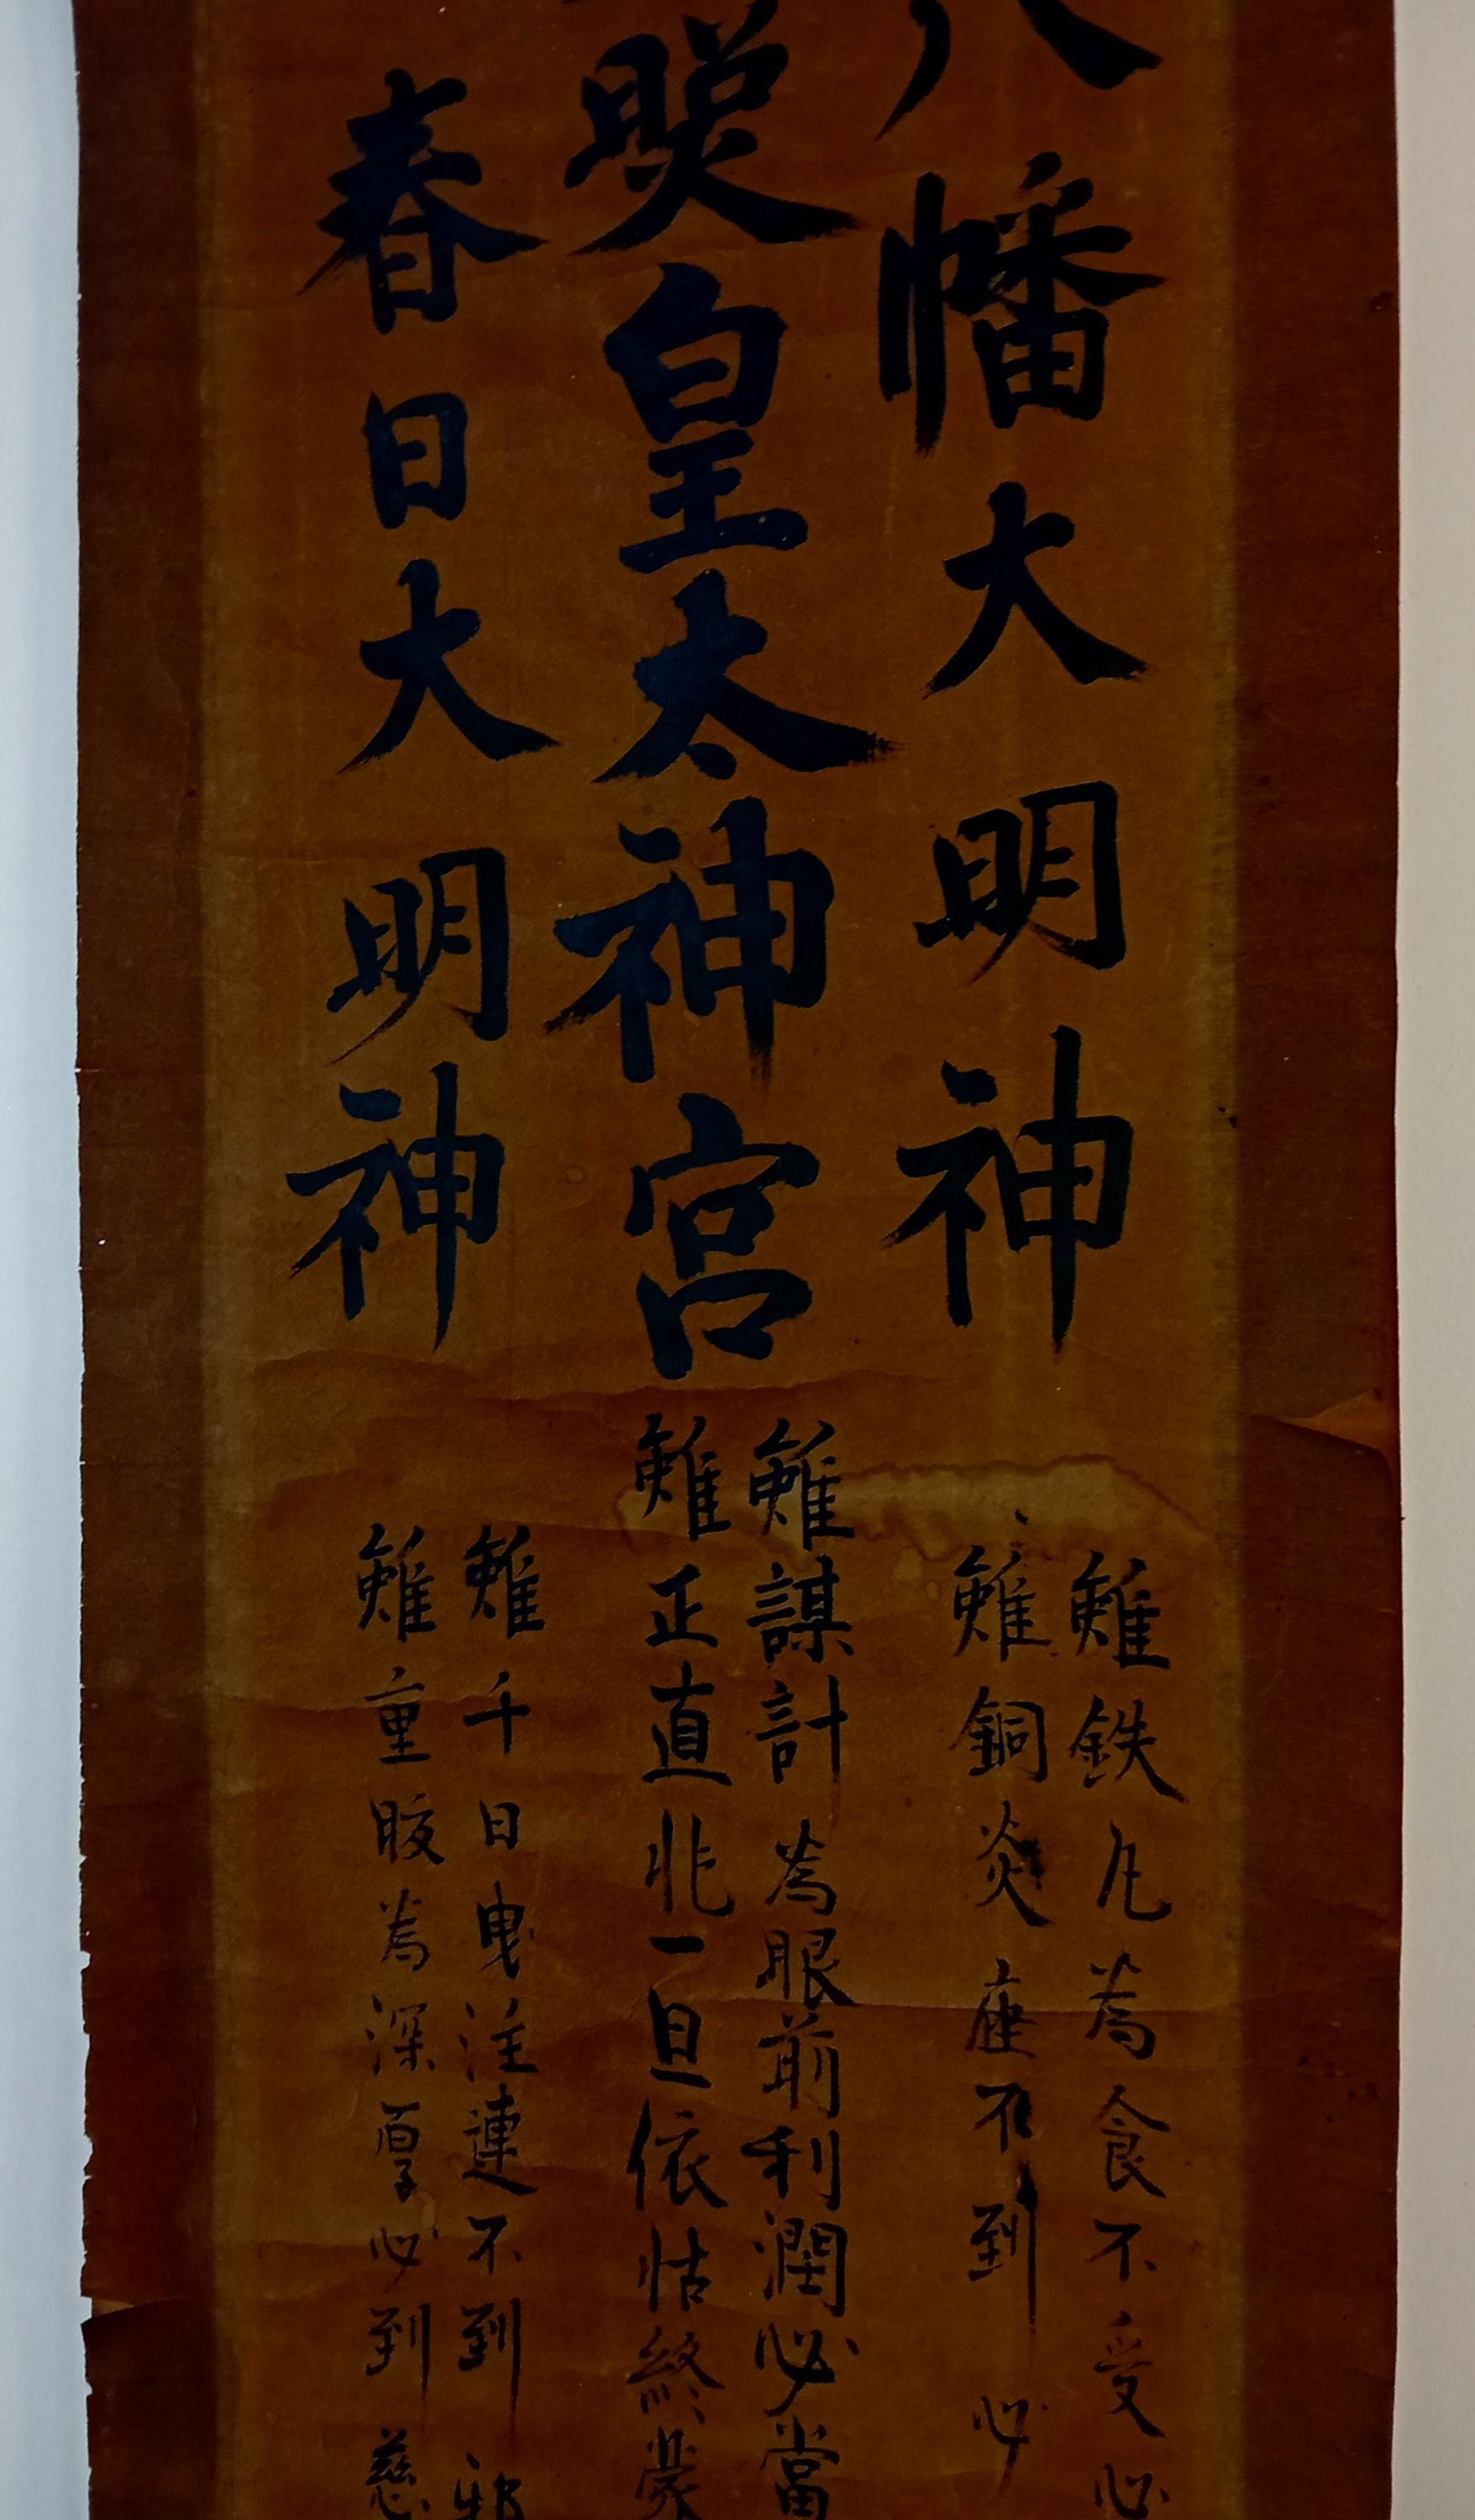 八幡大明神
雖鉄丸為食不受心
雖銅炎座不到心
照皇太神宮
雖謀計為眼前利潤必當
雖正直非一旦依怙終蒙
春日大明神
雖千日曳注連不到邪
雖重服為深厚必到慈